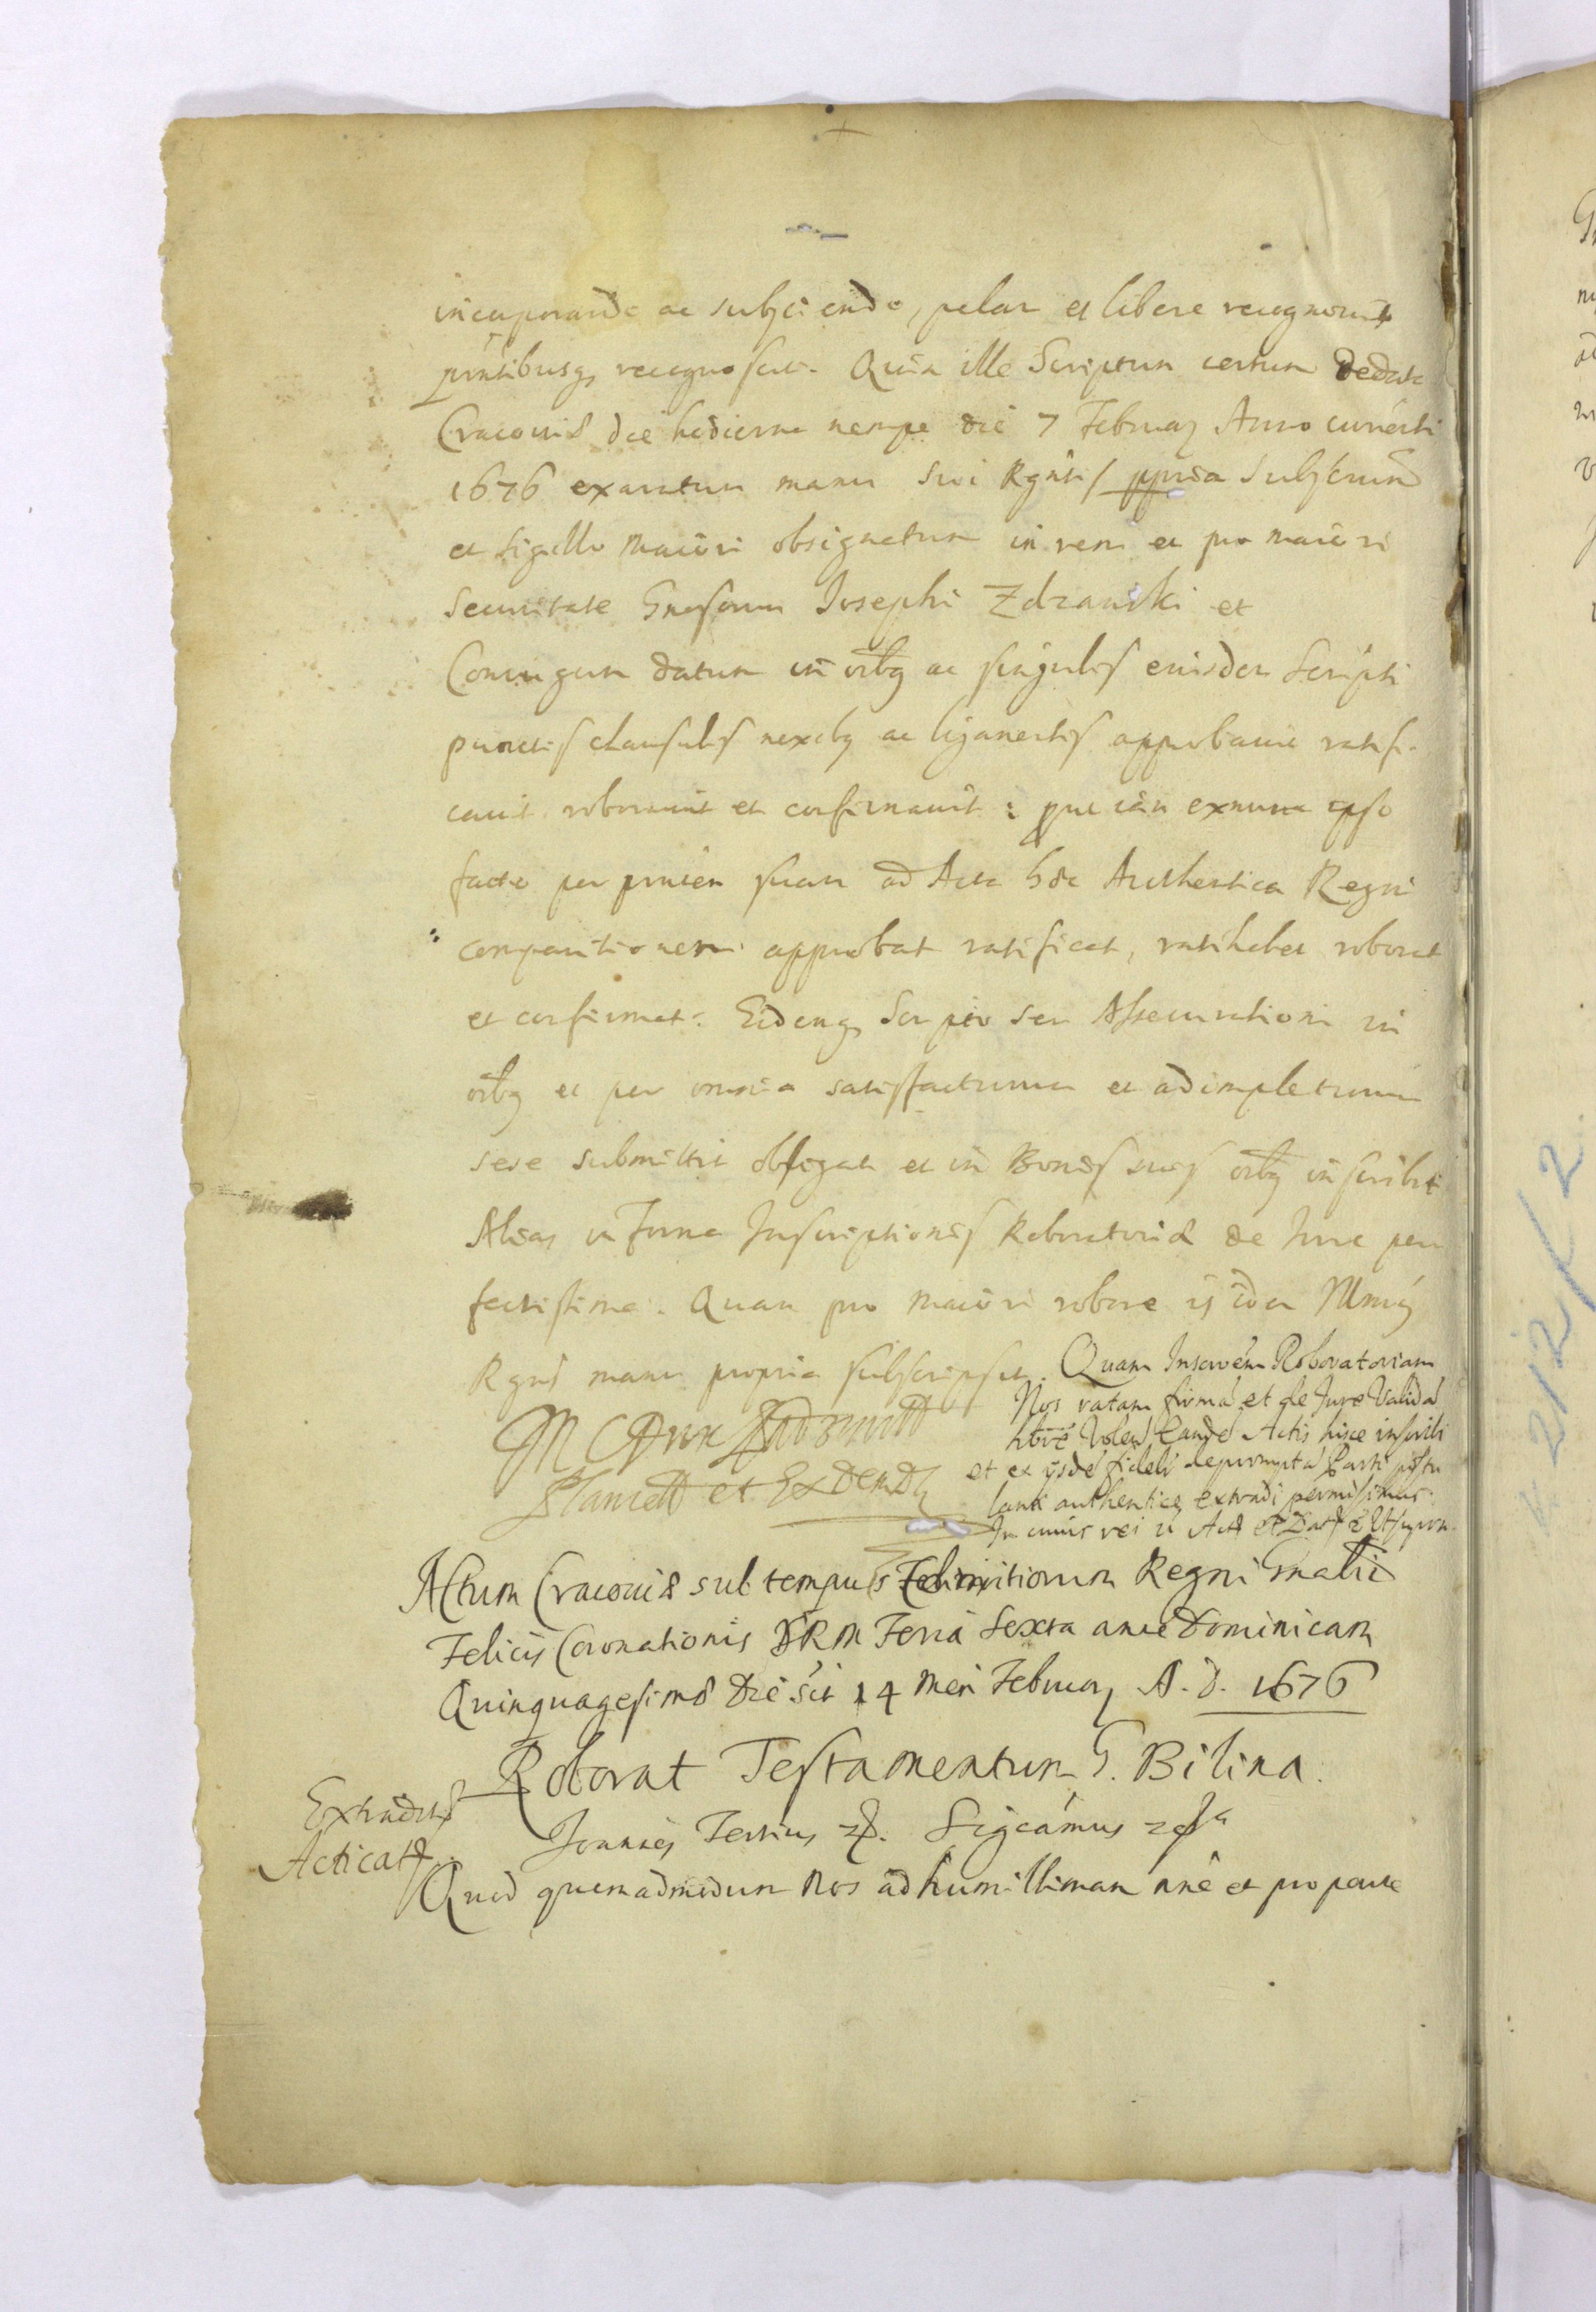 incuporando ac subjciendo, palam et libere recognovit
pñtibusq recognoscit. Quia ille Scriptum certum de data
Cracoviæ die hodierna nempe die 7 Februarij Anno currenti
1676 exaratum manu sui Rgñtis ppria Subscrūm
et Sigillo maiori obsignatum in rem et pro maiori
Securitate Gnosorum Josephi Zdzanski et
Coniugum datum in oibq ac singulis eiusdem Scripti
punctis clausulis nexibq ac ligamentis approbavit ratifi-
cavit roboravit et confirmavit: que iam exnunc ipso
facto per pñtem suam ad Acta hæc Authentica Regni
comparitionem approbat ratificat, ratihabet roborat
et confirmat. Eidemq Scripto seu Assecurationi in
oibq et per omnia satisfacturum et adimpleturum
sese submittit obligat et in Bonis suis oibq inscribit
Alias in Forma Inscriptionis Roboratoriæ de Jure per
fectissima. Quam pro maiori robore is idem
Rgñs manu propria subscripsit. Quam Inscrōēm Roboratoriam
Nos ratam firmā et de Jure Validā
hōre Volen Eandē Actis hisce inscribi
et ex ijsdē fideli depromptā Parti postu
lanti authentice extradi permisimus
In cuius rei Act et Dat Ut supra
et Extradendi
Actum Cracoviæ sub tempus Comitiorum Regni Gnalii
Felicis Coronationis SRM Feria Sexta ante Dominicam
Quinquagesimæ Die sct 14 men Februarij A. D. 1676
Roborat Testamentum G. Bilina.
Extradit
Acticat
Joannes Tertius Sigcāmus
Quod quemadmodum Nos ad humillimam nñe et pro parte